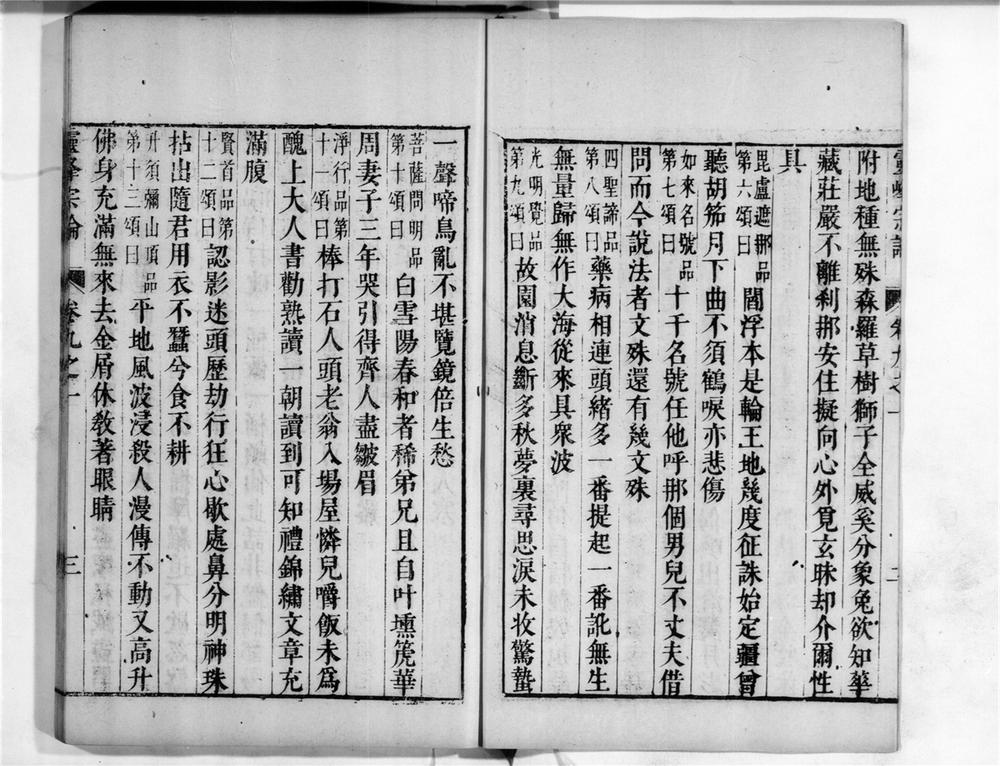 附地種無殊森羅草樹獅子全威奚分象兔欲知華
藏莊嚴不離剎那安住擬向心外覓玄昧却介爾性
具
毘盧遮那品
第六頌曰
閻浮本是輪王地幾度征誅始定疆曾
聽胡笳月下曲不須鶴唳亦悲傷
如來名號品
第七頌曰
十千名號任他呼那個男兒不丈夫借
問而今說法者文殊還有幾文殊
四聖諦品
第八頌曰
藥病相連頭緒多一番提起一番訛無生
無量歸無作大海從來具衆波
光明覺品
第九頌曰
故園消息斷多秋夢裏尋思淚未收驚蟄
一聲啼鳥亂不堪覽鏡倍生愁
菩薩問明品
第十頌曰
白雪陽春和者稀弟兄且自叶壎篪華
周妻子三年哭引得齊人盡皺眉
淨行品第
十一頌曰
棒打石人頭老翁入場屋憐兒嚼飯未爲
醜上大人書勸熟讀一朝讀到可知禮錦繡文章充
滿腹
賢首品第
十二頌曰
認影迷頭歷劫行狂心歇處鼻分明神珠
拈出隨君用衣不蠶兮食不耕
升須彌山頂品
第十三頌曰
平地風波浸殺人漫傳不動又高升
佛身充滿無來去金屑休教著眼睛
靈峯宗論
卷九之一
三